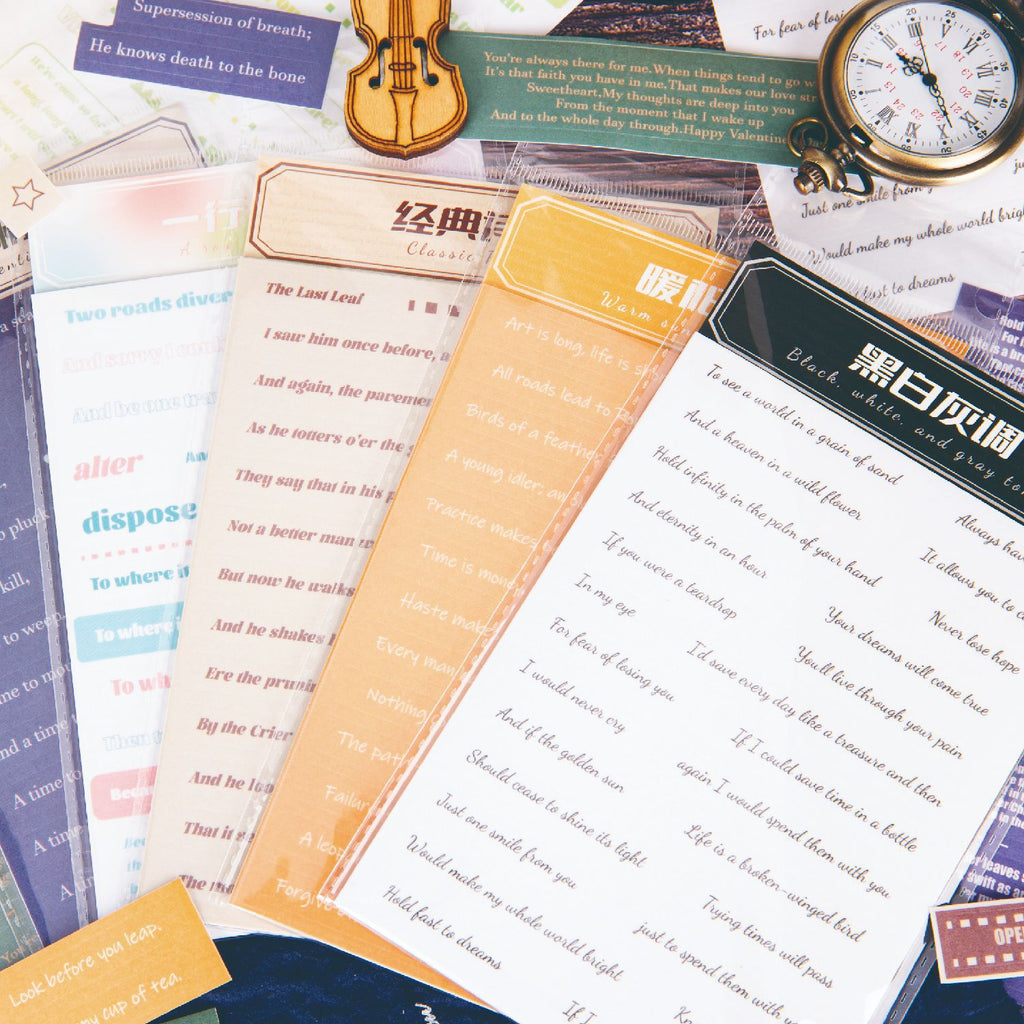 Supersession of breath;
He knows death to the bone
You're always there for me.When things tend to go w
It's that faith you have in me,That makes our love str
Sweetheart,My thoughts are deep into you
From the moment that I wake up
And to the whole day through.Happy Valentin
For fear of losi
Just one smile from y
Would make my whole world brigh
Just to dreams
一行
经典
Classic
暖
Warm su
黑白灰调
Black, white, and gray to
Two roads diver
And sorry i coul
And be one tra
alter
And
dispose
To where it
To where i
To wh
Then t
Becau
The Last Leaf
I saw him once before, a
And again, the pavemen
As he totters o'er the g
They say that in his p
Not a better man
But now he walks
And he shakes
Ere the pruni
By the Crier
And he loo
That it s
The m
Art is long, life is s
All roads lead to
Birds of a feather
A young idler, an
Practice makes
Time is mone
Haste make
Every man
Nothing
The pat
Failur
A leop
Forgive
To see a world in a grain of sand
And a heaven in a wild flower
Hold infinity in the palm of your hand
And eternity in an hour
If you were a teardrop
In my eye
For fear of losing you
I would never cry
And if the golden sun
Should cease to shine its light
Just one smile from you
Would make my whole world bright
Hold fast to dreams
Always hav
It allows you to c
Never lose hope
Your dreams will come true
You'll live through your pain
I'd save every day like a treasure and then
If I could save time in a bottle
again I would spend them with you
Life is a broken-winged bird
Trying times will pass
just to spend them with y
If I
Kn
o pluck
kill,
to weep
me to mo
nd a time
A time to
A time
A ti
Look before you leap.
my cup of tea.
OPE